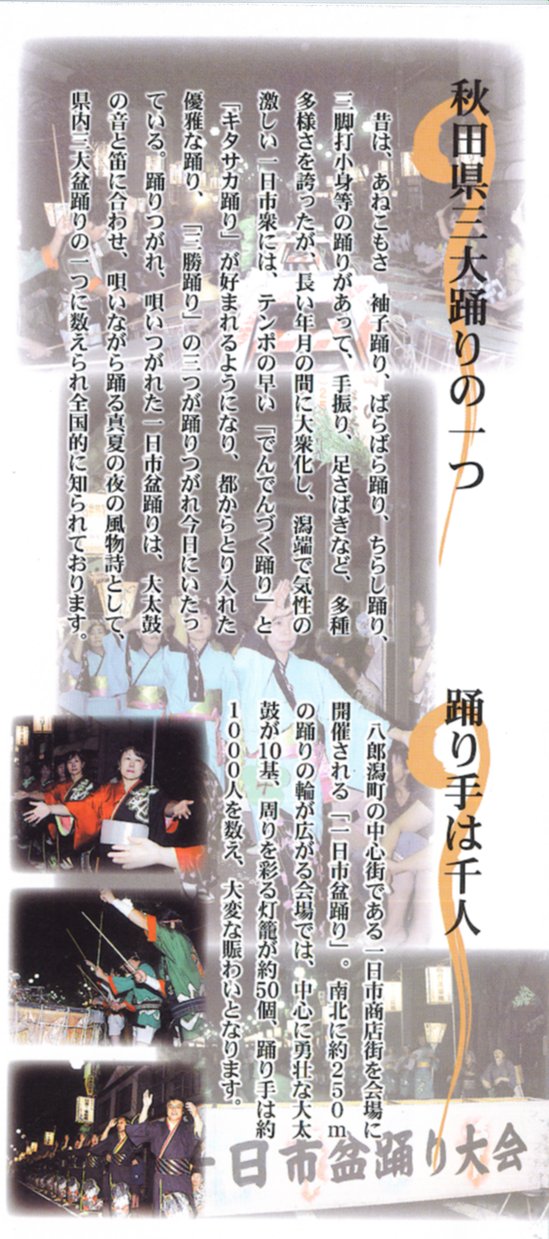 秋田県三大踊りの一つ
昔は、あねこもさ 袖子踊り、ばらばら踊り、ちらし踊り、
三脚打小身等の踊りがあって、手振り、足さばきなど、多種
多様さを誇ったが、長い年月の間に大衆化し、潟端で気性の
激しい一日市衆には、テンポの早い「でんでんづく踊り」と
「キタサカ踊り」が好まれるようになり、都からとり入れた
優雅な踊り、「三勝踊り」の三つが踊りつがれ今日にいたっ
ている。踊りつがれ、唄いつがれた一日市盆踊りは、大太鼓
の音と笛に合わせ、唄いながら踊る真夏の夜の風物詩として、
県内三大盆踊りの一つに数えられ全国的に知られております。
踊り手は千人
八郎潟町の中心街である一日市商店街を会場に
開催される「一日市盆踊り」。南北に約250m
の踊りの輪が広がる会場では、中心に勇壮な大太
鼓が10基、周りを彩る灯籠が約50個、踊り手は約
1000人を数え、大変な賑わいとなります。
一日市盆踊り大会